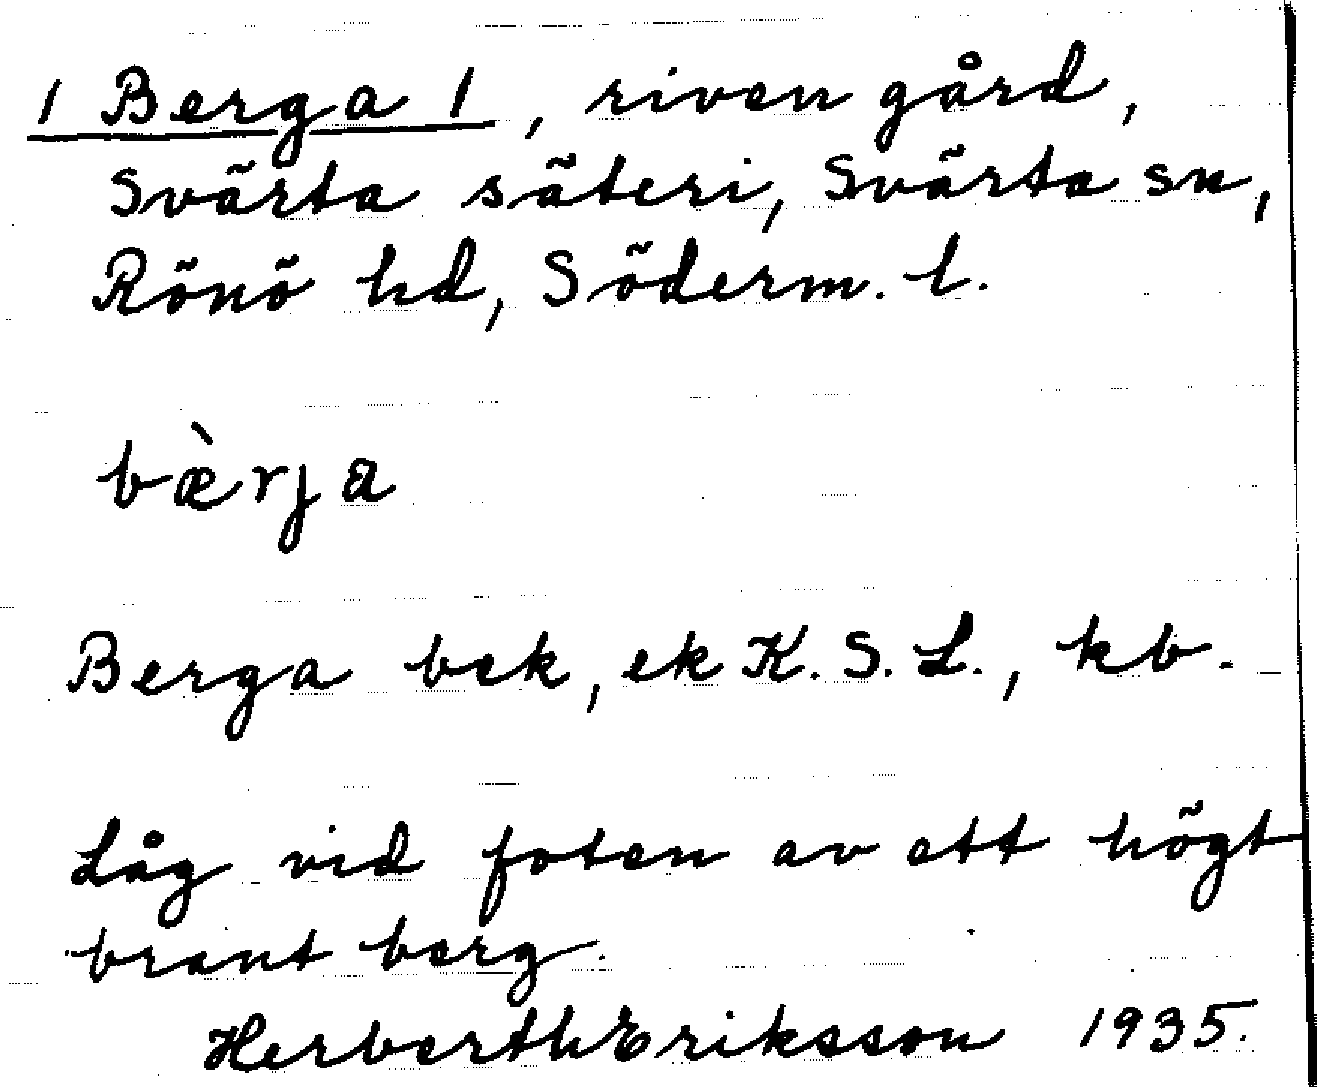 1 Berga 1, riven gård,
Svärta säteri, Svärta sn,
Rönö hd, Söderm. l.
bæ̀rja
Berga bek, ek K. S. L., kb.
Låg vid foten av ett högt
brant berg.
Herberth Eriksson 1935.